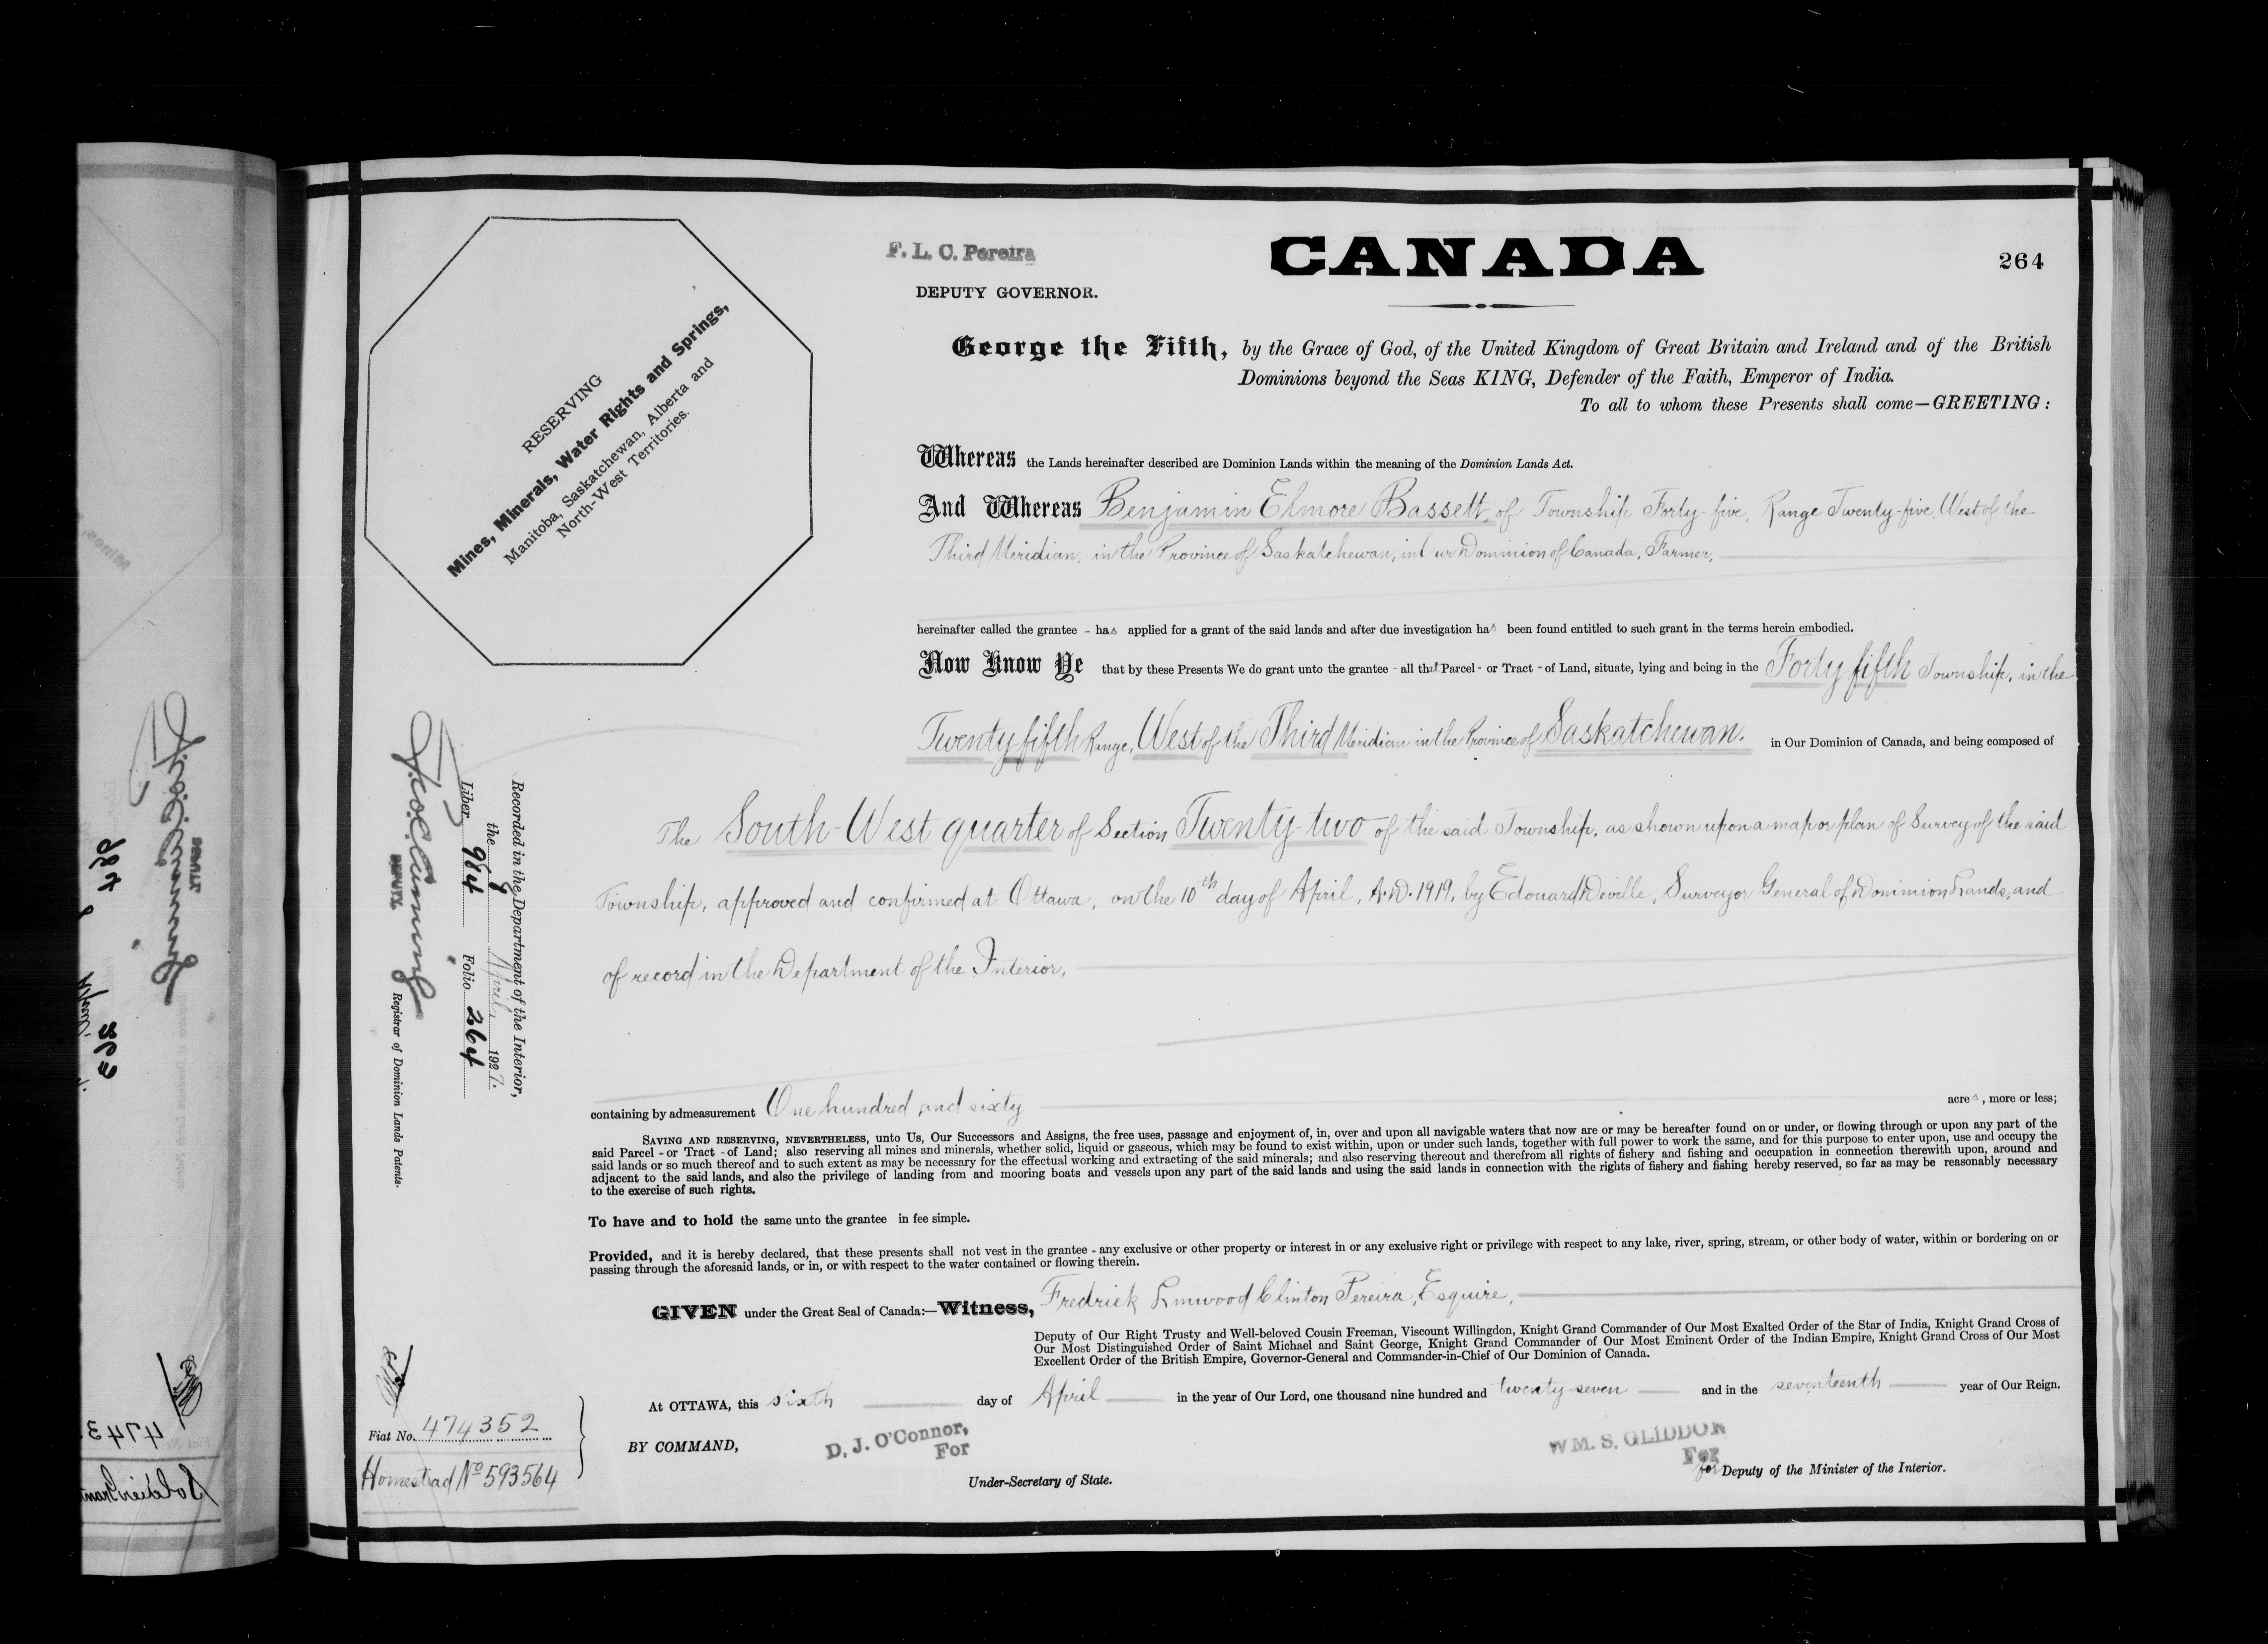 F. L. C. Pereira
DEPUTY GOVERNOR.
CANADA
264
RESERVING
Mines, Minerals, Water Rights and Springs,
Manitoba, Saskatchewan, Alberta and
North-West Territories.
George the Fifth, by the Grace of God, of the United Kingdom of Great Britain and Ireland and of the British
Dominions beyond the Seas KING, Defender of the Faith, Emperor of India.
To all to whom these Presents shall come—GREETING:
Whereas the Lands hereinafter described are Dominion Lands within the meaning of the Dominion Lands Act.
And Whereas Benjamin Elmore Bassett, of Township Forty-five, Range Twenty-five, West of the
Third Meridian, in the Province of Saskatchewan, in Our Dominion of Canada, Farmer,
hereinafter called the grantee - has applied for a grant of the said lands and after due investigation has been found entitled to such grant in the terms herein embodied.
Now Know Ye that by these Presents We do grant unto the grantee - all that Parcel - or Tract - of Land, situate, lying and being in the Forty fifth Township, in the
Twenty fifth Range, West of the Third Meridian in the Province of Saskatchewan. in Our Dominion of Canada, and being composed of
The South-West quarter of Section Twenty-two of the said Township, as shown upon a map or plan of Survey of the said
Township, approved and confirmed at Ottawa, on the 10th day of April, A.D. 1919, by Edouard Deville, Surveyor General of Dominion Lands, and
of record in the Department of the Interior,
containing by admeasurement One hundred and sixty acres, more or less;
SAVING AND RESERVING, NEVERTHELESS, unto Us, Our Successors and Assigns, the free uses, passage and enjoyment of, in, over and upon all navigable waters that now are or may be hereafter found on or under, or flowing through or upon any part of the
said Parcel - or Tract - of Land; also reserving all mines and minerals, whether solid, liquid or gaseous, which may be found to exist within, upon or under such lands, together with full power to work the same, and for this purpose to enter upon, use and occupy the
said lands or so much thereof and to such extent as may be necessary for the effectual working and extracting of the said minerals; and also reserving thereout and therefrom all rights of fishery and fishing and occupation in connection therewith upon, around and
adjacent to the said lands, and also the privilege of landing from and mooring boats and vessels upon any part of the said lands and using the said lands in connection with the rights of fishery and fishing hereby reserved, so far as may be reasonably necessary
to the exercise of such rights.
To have and to hold the same unto the grantee in fee simple.
Provided, and it is hereby declared, that these presents shall not vest in the grantee - any exclusive or other property or interest in or any exclusive right or privilege with respect to any lake, river, spring, stream, or other body of water, within or bordering on or
passing through the aforesaid lands, or in, or with respect to the water contained or flowing therein.
GIVEN under the Great Seal of Canada:—Witness, Fredrick Linwood Clinton Pereira, Esquire,
Deputy of Our Right Trusty and Well-beloved Cousin Freeman, Viscount Willingdon, Knight Grand Commander of Our Most Exalted Order of the Star of India, Knight Grand Cross of
Our Most Distinguished Order of Saint Michael and Saint George, Knight Grand Commander of Our Most Eminent Order of the Indian Empire, Knight Grand Cross of Our Most
Excellent Order of the British Empire, Governor-General and Commander-in-Chief of Our Dominion of Canada.
At OTTAWA, this sixth day of April in the year of Our Lord, one thousand nine hundred and twenty seven and in the seventeenth year of Our Reign.
BY COMMAND,
D. J. O'Connor,
For
Under-Secretary of State.
WM. S. GLIDDON
For
for Deputy of the Minister of the Interior.
Recorded in the Department of the Interior,
the 8 April, 1927.
Liber 984 Folio 264
DEPUTY
Registrar of Dominion Lands Patents.
Fiat No. 474352
Homestead No 593564